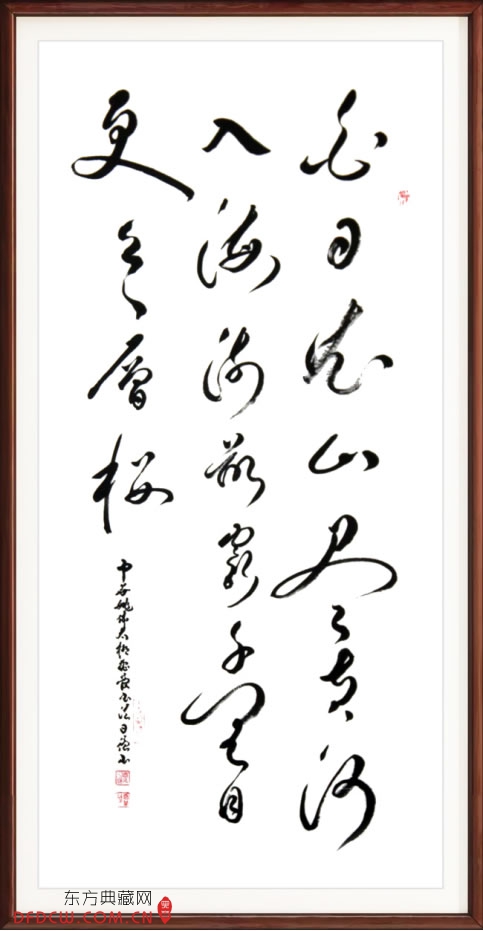 白日依山尽黄河
入海流欲窮千里目
更上一層楼
东方典藏网
DFDCW.COM.CN